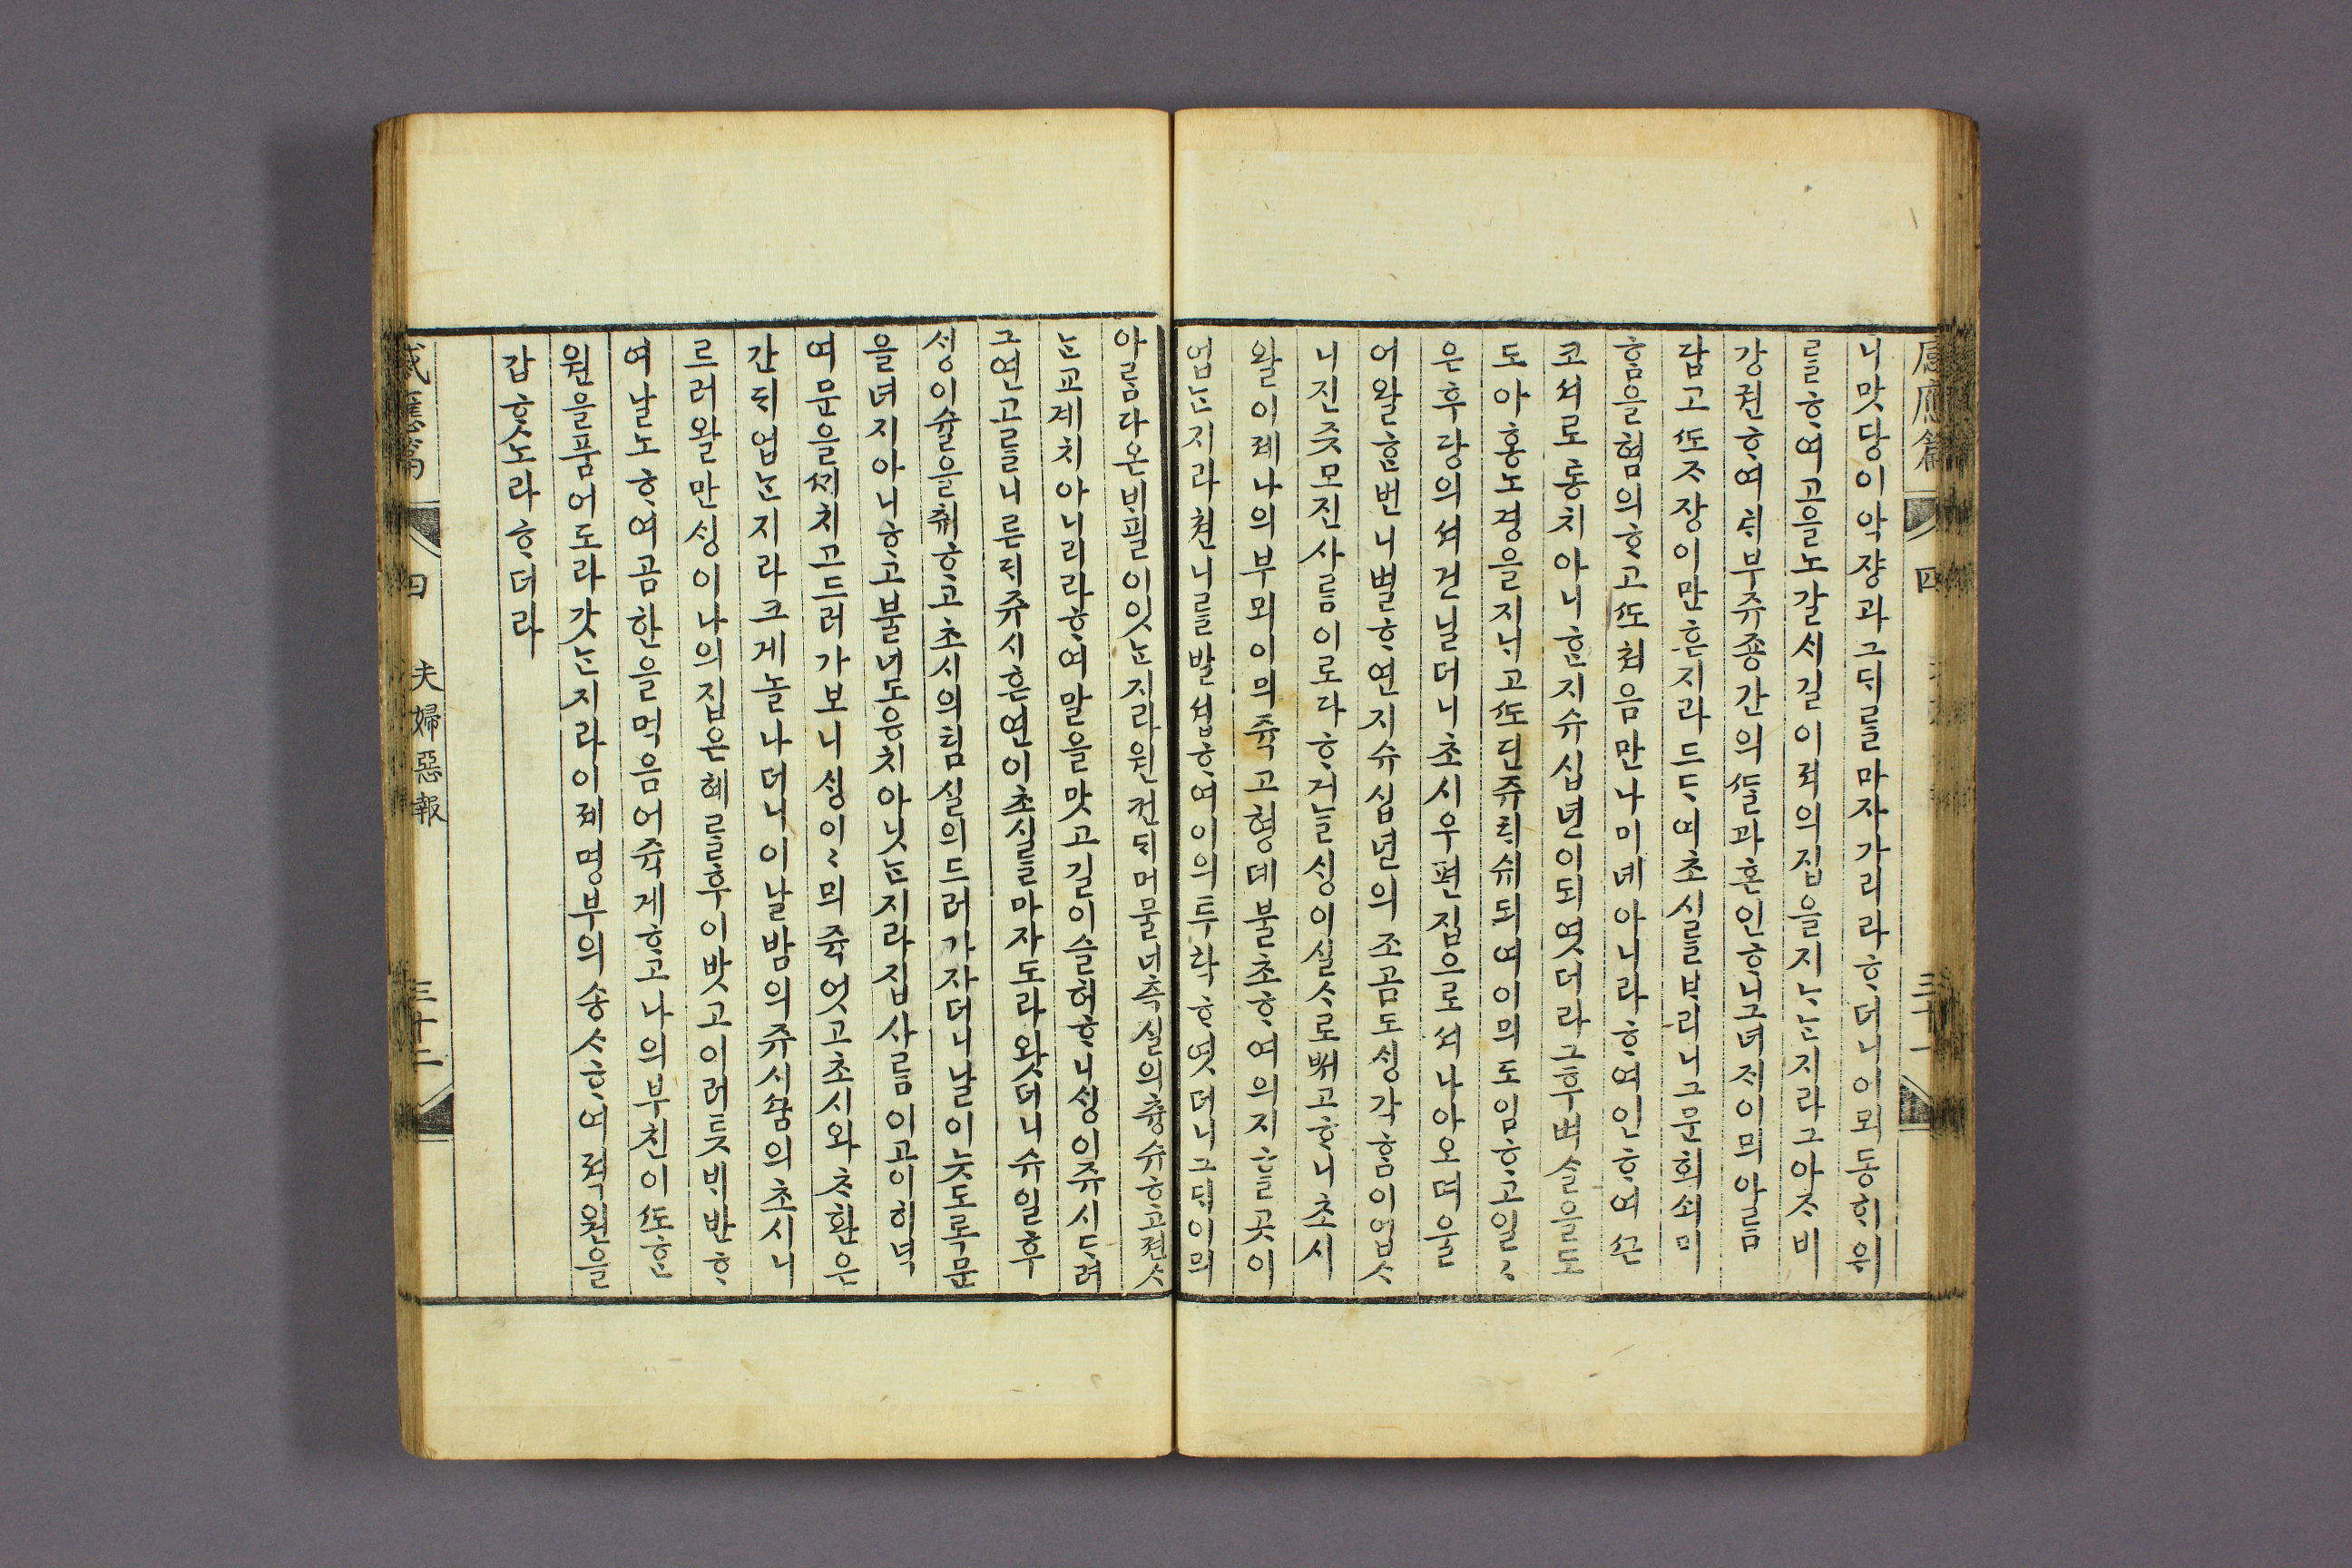 니맛당이악쟝과그ᄃᆡ를마자가리라ᄒᆞ더니이ᄯᅢ동ᄒᆡ위
를ᄒᆞ여고을노갈ᄉᆡ길이의집을지ᄂᆞᄂᆞᆫ지라그아ᄌᆞ비
강권ᄒᆞ여ᄃᆡ부쥬죵간의ᄯᆞᆯ과혼인ᄒᆞ니고뎨ᄌᆡ이믜아ᄅᆞᆷ
답고ᄯᅩᄌᆞ장이만ᄒᆞᆫ지라드ᄃᆡ여초시ᄅᆞᆯᄇᆞ리니그문희쇠미
ᄒᆞᆷ을혐의ᄒᆞ고ᄯᅩ쳐음만나미녜아니라ᄒᆞ여인ᄒᆞ여ᄭᅳᆫ
코서로통치아니ᄒᆞᆫ지슈십년이되엿더라그후ᄲᅥ슬을도
도아홍노경을지니고ᄯᅩ단쥬ᄌᆞᄉᆞ되여이믜도임ᄒᆞ고일ᄀ
은후당의셔건닐더니초시우편집으로셔나아오며울
어왈ᄒᆞᆫ번니별ᄒᆞ연지슈십년의조곰도ᄉᆡᆼ각ᄒᆞᆷ이업ᄉᆞ
니진즛모진사ᄅᆞᆷ이로다ᄒᆞ거ᄂᆞᆯᄉᆡᆼ이실ᄉᆞ로ᄡᅥ고ᄒᆞ니초시
왈이제나의부뫼이믜죽고형뎨불초ᄒᆞ여의지ᄒᆞᆯ곳이
업ᄂᆞᆫ지라쳔니ᄅᆞᆯ발셥ᄒᆞ여이의두락ᄒᆞ엿더니그ᄃᆡ이믜
아ᄅᆞᆷ다온ᄇᆡ필이잇ᄂᆞᆫ지라원컨ᄃᆡ머물너측실의츙슈ᄒᆞ고젼ᄉᆞ
ᄂᆞᆫ교계치아니리라ᄒᆞ여말을맛고길이슬허ᄒᆞ니ᄉᆡᆼ이쥬시ᄃᆞ려
그연고ᄅᆞᆯ니ᄅᆞᆫᄃᆡ쥬시흔연이초시ᄅᆞᆯ마자도라왓더니슈일후
ᄉᆡᆼ이슐을ᄎᆔᄒᆞ고초시의침실의드러가자더니날이ᄂᆞᆺ도록문
을여지아니ᄒᆞ고불너도응치아닛ᄂᆞᆫ지라집사ᄅᆞᆷ이고이히넉
여문을ᄭᆡ치고드러가보니ᄉᆡᆼ이이믜죽엇고초시와ᄎᆞ환은
간ᄃᆡ업ᄂᆞᆫ지라크게놀나더니이날밤의쥬시ᄭᅮᆷ의초시니
르러왈만ᄉᆡᆼ이나의집은혜ᄅᆞᆯ후이밧고이러ᄐᆞᆺᄇᆡ반ᄒᆞ
여날노ᄒᆞ여곰한을먹음어죽게ᄒᆞ고나의부친이ᄯᅩᄒᆞᆫ
원을품어도라갓ᄂᆞᆫ지라이제명부의숑ᄉᆞᄒᆞ여젹원을
갑ᄒᆞᆺ노라ᄒᆞ더라
感應篇 四 夫婦惡報 三十二